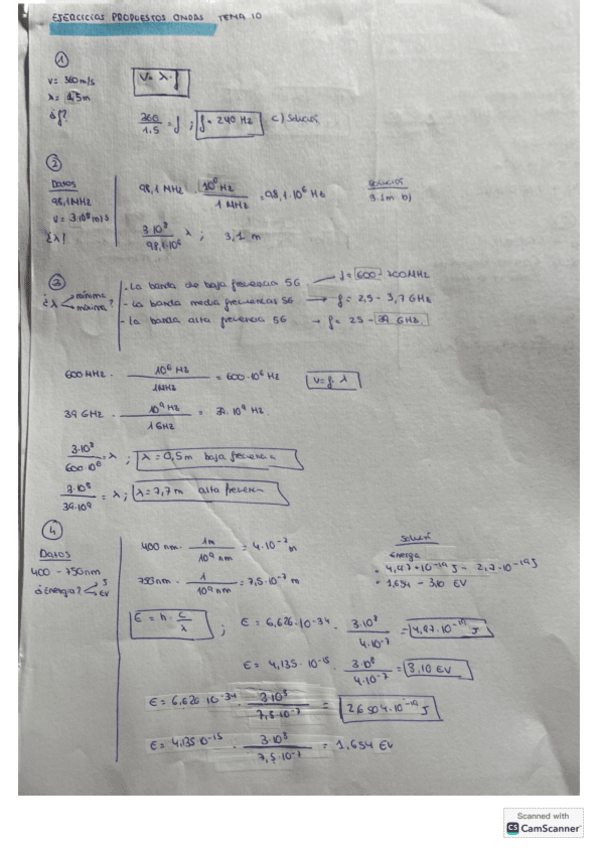 EJERCICIOS PROPUESTOS ONDAS TEMA 10
①
v= 360 m/s
λ= 1,5m
¿f?
v= λ·f
360/1.5 = f ; f= 240 Hz c) Solución
②
Datos
98,1 MHz
v= 3·10⁸ m/s
¿λ?
98,1 MHz 10⁶ Hz/1 MHz = 98,1·10⁶ Hz
Solución
3.1m b)
3·10⁸/98,1·10⁶ λ ; 3,1 m
③
¿λ mínima máxima?
- La banda de baja frecuencia 5G f= 600 - 700 MHz
- La banda media frecuencias 5G → f= 2,5 - 3,7 GHz
- La banda alta frecuencia 5G → f= 25 - 39 GHz.
600 MHz · 10⁶ Hz/1MHz = 600·10⁶ Hz
v= f·λ
39 GHz · 10⁹ Hz/1 GHz = 39·10⁹ Hz.
3·10⁸/600·10⁶ = λ ; λ= 0,5m baja frecuencia
3·10⁸/39·10⁹ = λ ; λ= 7,7 m alta frecuencia
④
Datos
400 - 750nm
¿Energía? J EV
400 nm · 1m/10⁹ nm = 4·10⁻⁷ m
750nm · 1/10⁹ nm = 7,5·10⁻⁷ m
Solución
Energía
= 4,97·10⁻¹⁹J - 2,7·10⁻¹⁹J
= 1,654 - 3,10 EV
E = h · C/λ ; E= 6,626·10⁻³⁴ · 3·10⁸/4·10⁻⁷ = 4,97·10⁻¹⁹ J
E= 4,135·10⁻¹⁵ · 3·10⁸/4·10⁻⁷ = 3,10 EV
E= 6,626 10⁻³⁴ · 3·10⁸/7,5·10⁻⁷ = 2,6504·10⁻¹⁹ J
E= 4,135 10⁻¹⁵ · 3·10⁸/7,5·10⁻⁷ = 1,654 EV
Scanned with
CS CamScanner